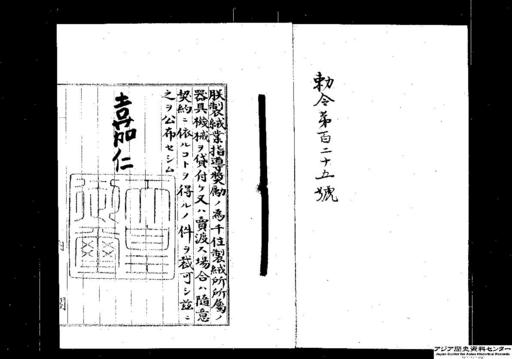 勅令第百二十五號
朕製絨業指導奬勵ノ為千住製絨所所属ノ
器具機械ヲ貸付ケ又ハ賣渡ス場合ハ隨意
契約ニ依ルコトヲ得ルノ件ヲ裁可シ茲ニ
之ヲ公布セシム
嘉仁
天皇
御璽
アジア歴史資料センター
Japan Center for Asian Historical Records